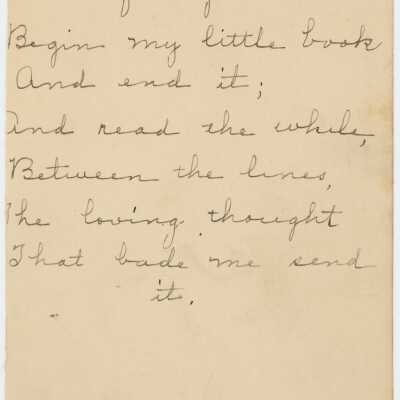 Begin my little book
And end it;
And read the while,
Between the lines,
The loving thought
That bade me send
it.